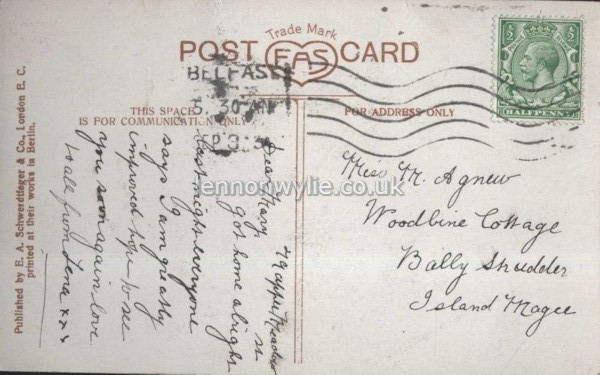 Trade Mark
POST EAS CARD
BELFAST
5. 30 AM
THIS SPACE
IS FOR COMMUNICATION ONLY
FOR ADDRESS ONLY
HALFPENNY
Published by E. A. Schwerdtfeger & Co., London E. C.
printed at their works in Berlin.
79 upper Meadow
st
Dear Mary,
got home alright
last night everyone
says I am greatly
improved hope to see
you soon again love
to all from Lena xxx
Miss M. Agnew
Woodbine Cottage
Bally
Island Magee
lennonwylie.co.uk